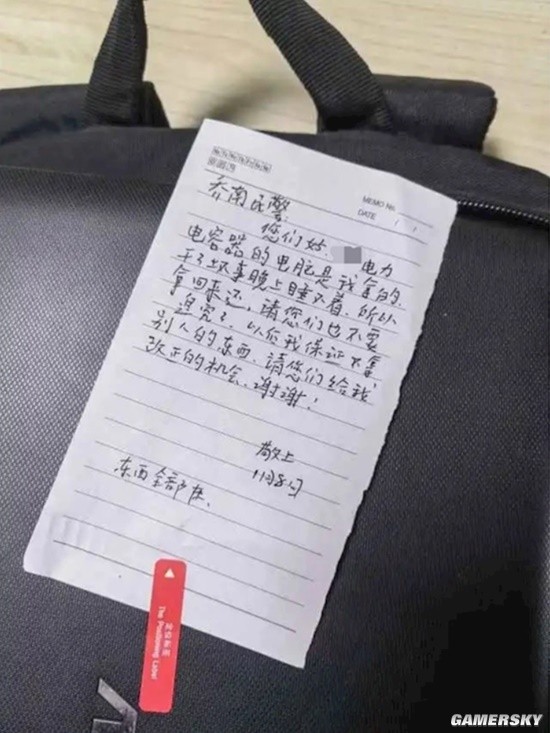 MEMO No.
DATE / /
乔南民警:
您们好, 电力
电容器的电脑是我拿的.
干了坏事晚上睡不着.所以
拿回来还,请您们也不要
追究了.以后我保证不拿
别人的东西.请您们给我
改正的机会.谢谢!
敬上
11月8日
东西全部在.
定位标签
The Positioning Label
GAMERSKY